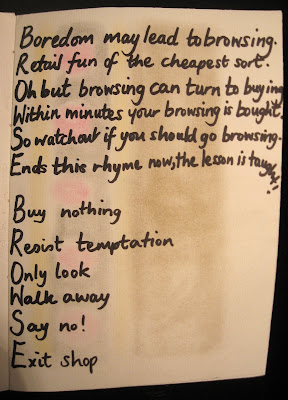 Boredom may lead to browsing.
Retail fun of the cheapest sort.
Oh but browsing can turn to buying
Within minutes your browsing is bought.
So watchout if you should go browsing.
Ends this rhyme now, the lesson is taught!
Buy nothing
Resist temptation
Only look
Walk away
Say no!
Exit shop